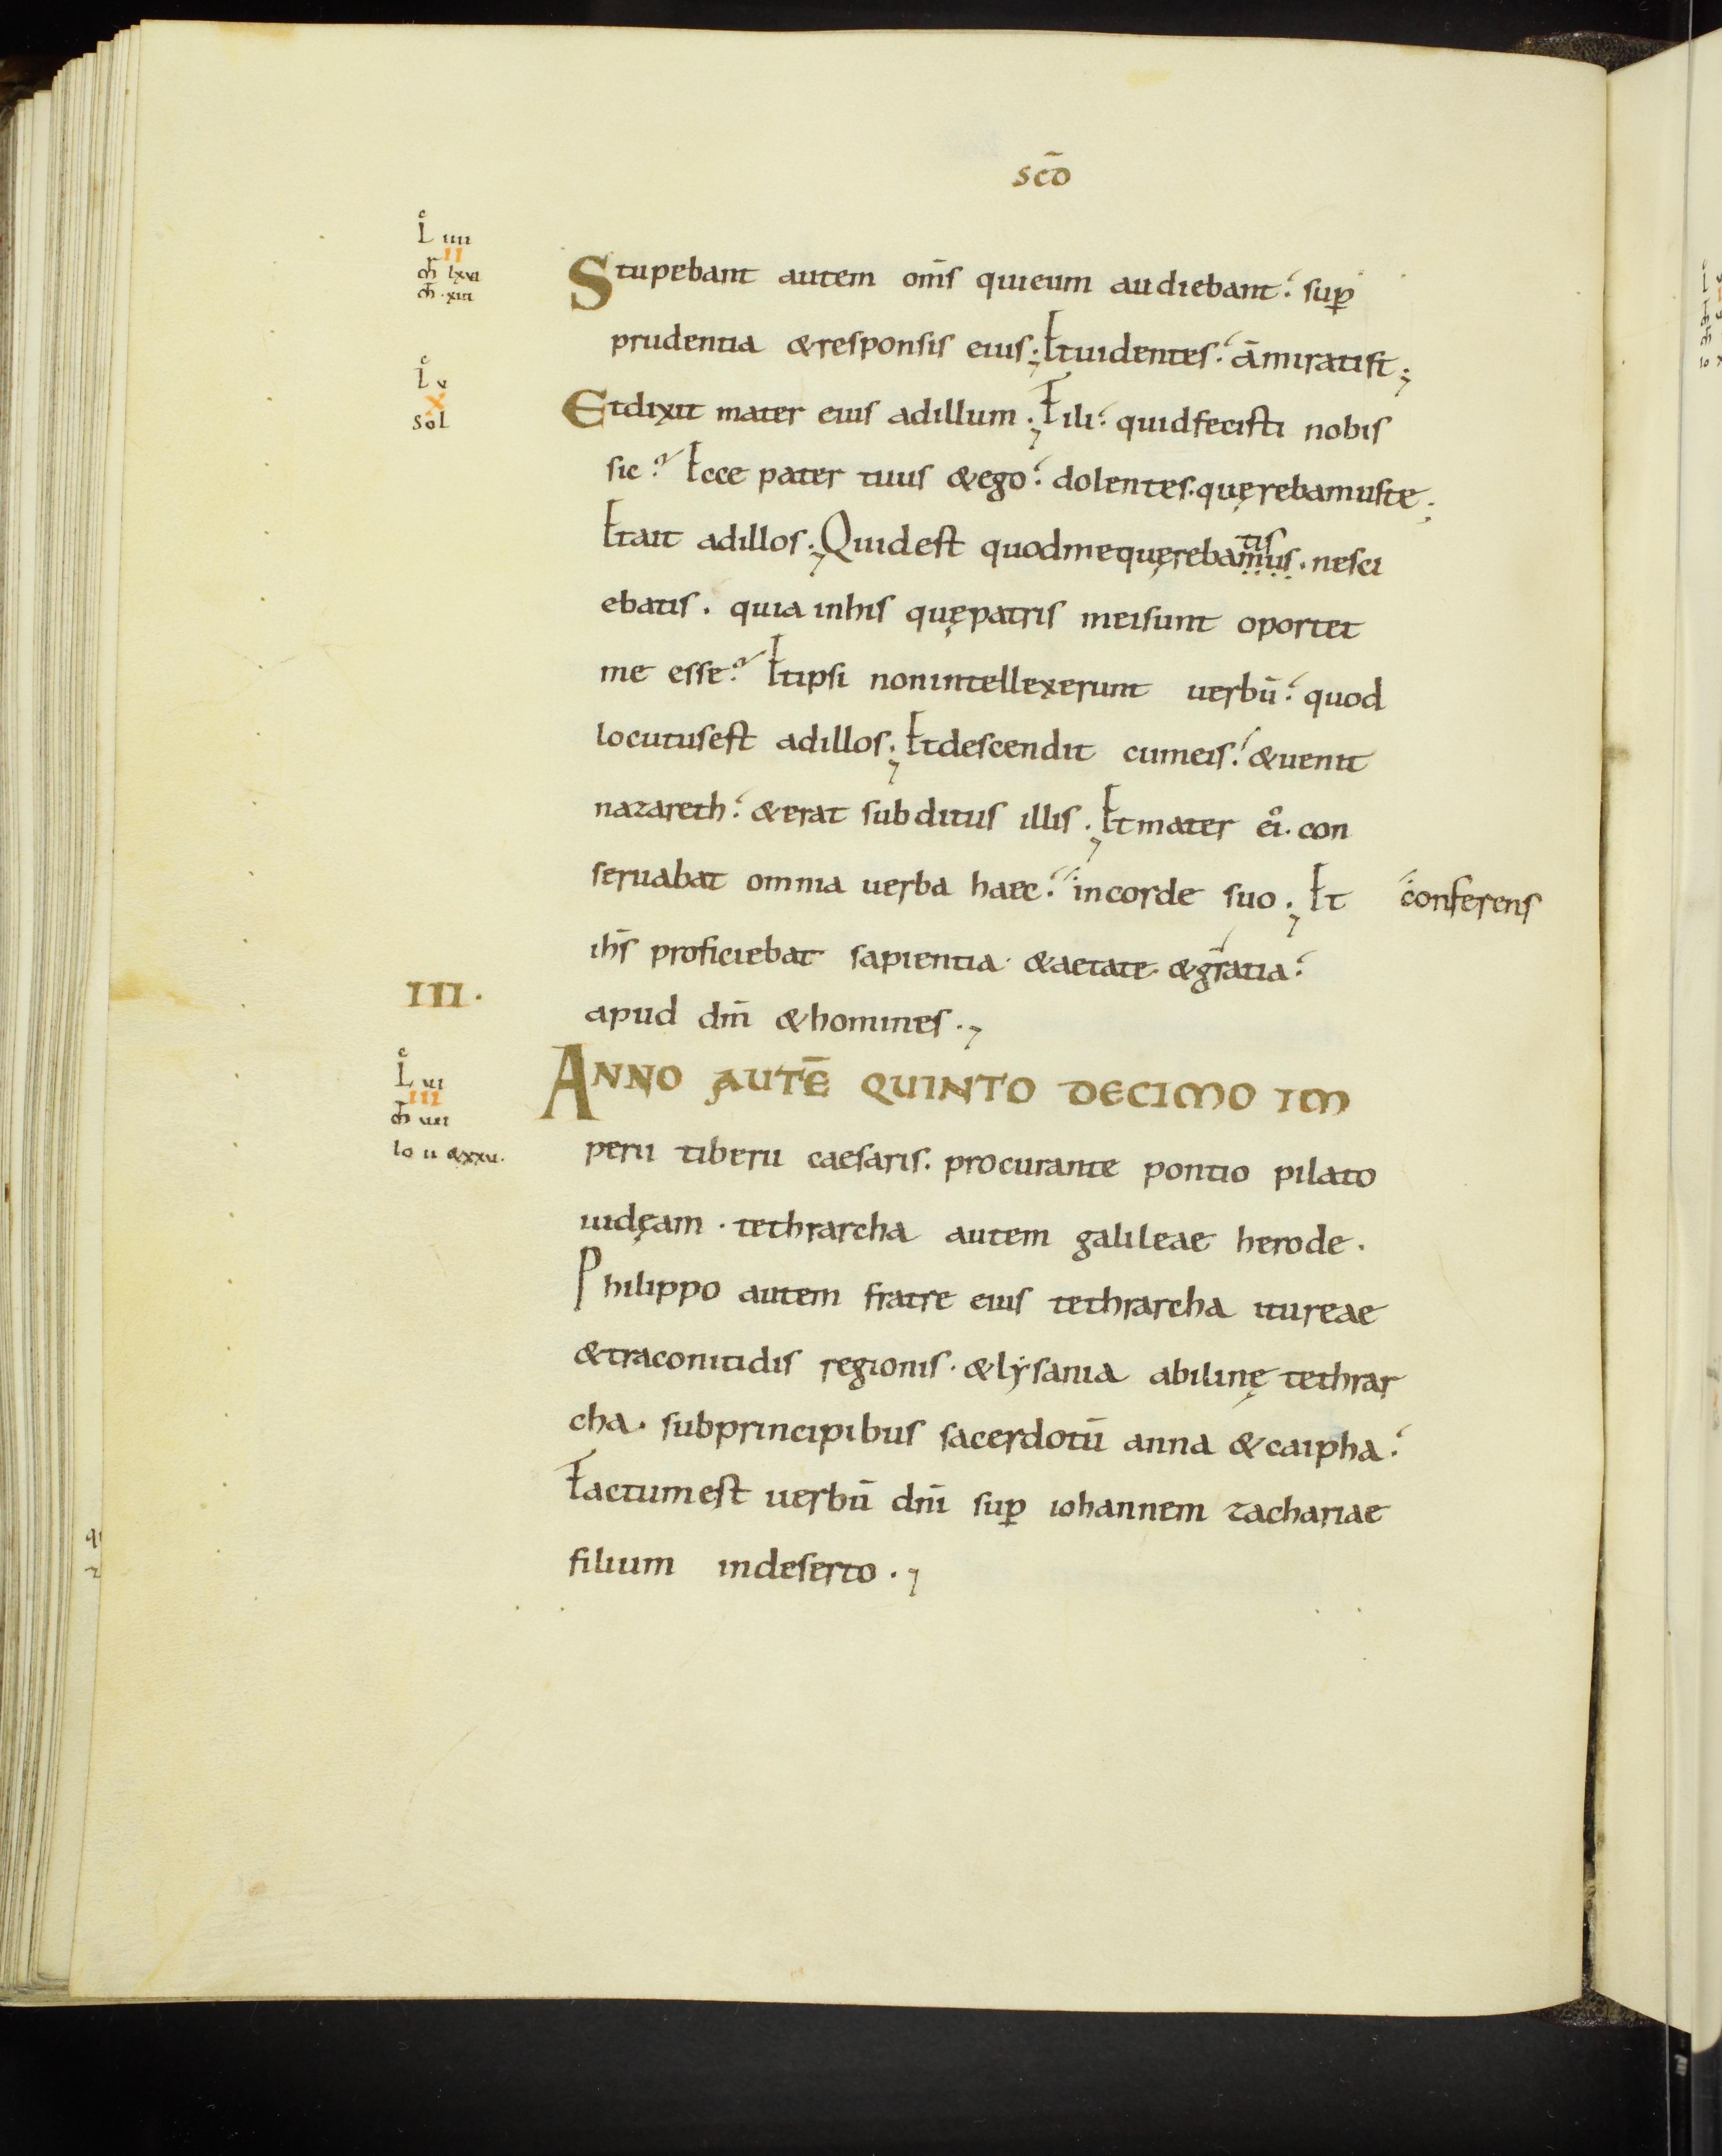 scō
L iiii
II
m̄r lxvi
m̄ · xiii
Stupebant autem om̄s quieum audiebant. sup̱
prudentia &responsis eius; Etuidentes. ām̄iratist̄;
L v
X
sol
Etdixit mater eius adillum; Fili. quidfecisti nobis
sic? Ecce pater tuus &ego. dolentes. quęrebamuste;
Etait adillos; Quidest quodmequęrebamus tis. nesci
ebatis. quia inhis quępatris meisunt oportet
me esse? Etipsi nonintellexerunt uerbū. quod
locutusest adillos; Etdescendit cumeis. &uenit
nazareth. &erat subditus illis; Etmater ei᾽. con
seruabat omnia uerba haec. incorde suo; Et conferens
ih̄s proficiebat sapientia &aetate. &gr̄atia.
III.
apud dm̄ &homines;
L vi
III
m̄ vii
Io ii &xxv.
ANNO AUTĒ QUINTO DECIMO IM
perii tiberii caesaris. procurante pontio pilato
iudęam. tethrarcha autem galileae herode.
Philippo autem fratre eius tethrarcha itureae
&traconitidis regionis. &lẏsania abilinę tethrar
cha. subprincipibus sacerdotū anna &caipha.
Factumest uerbū dn̄i sup̱ iohannem zachariae
filium indeserto;